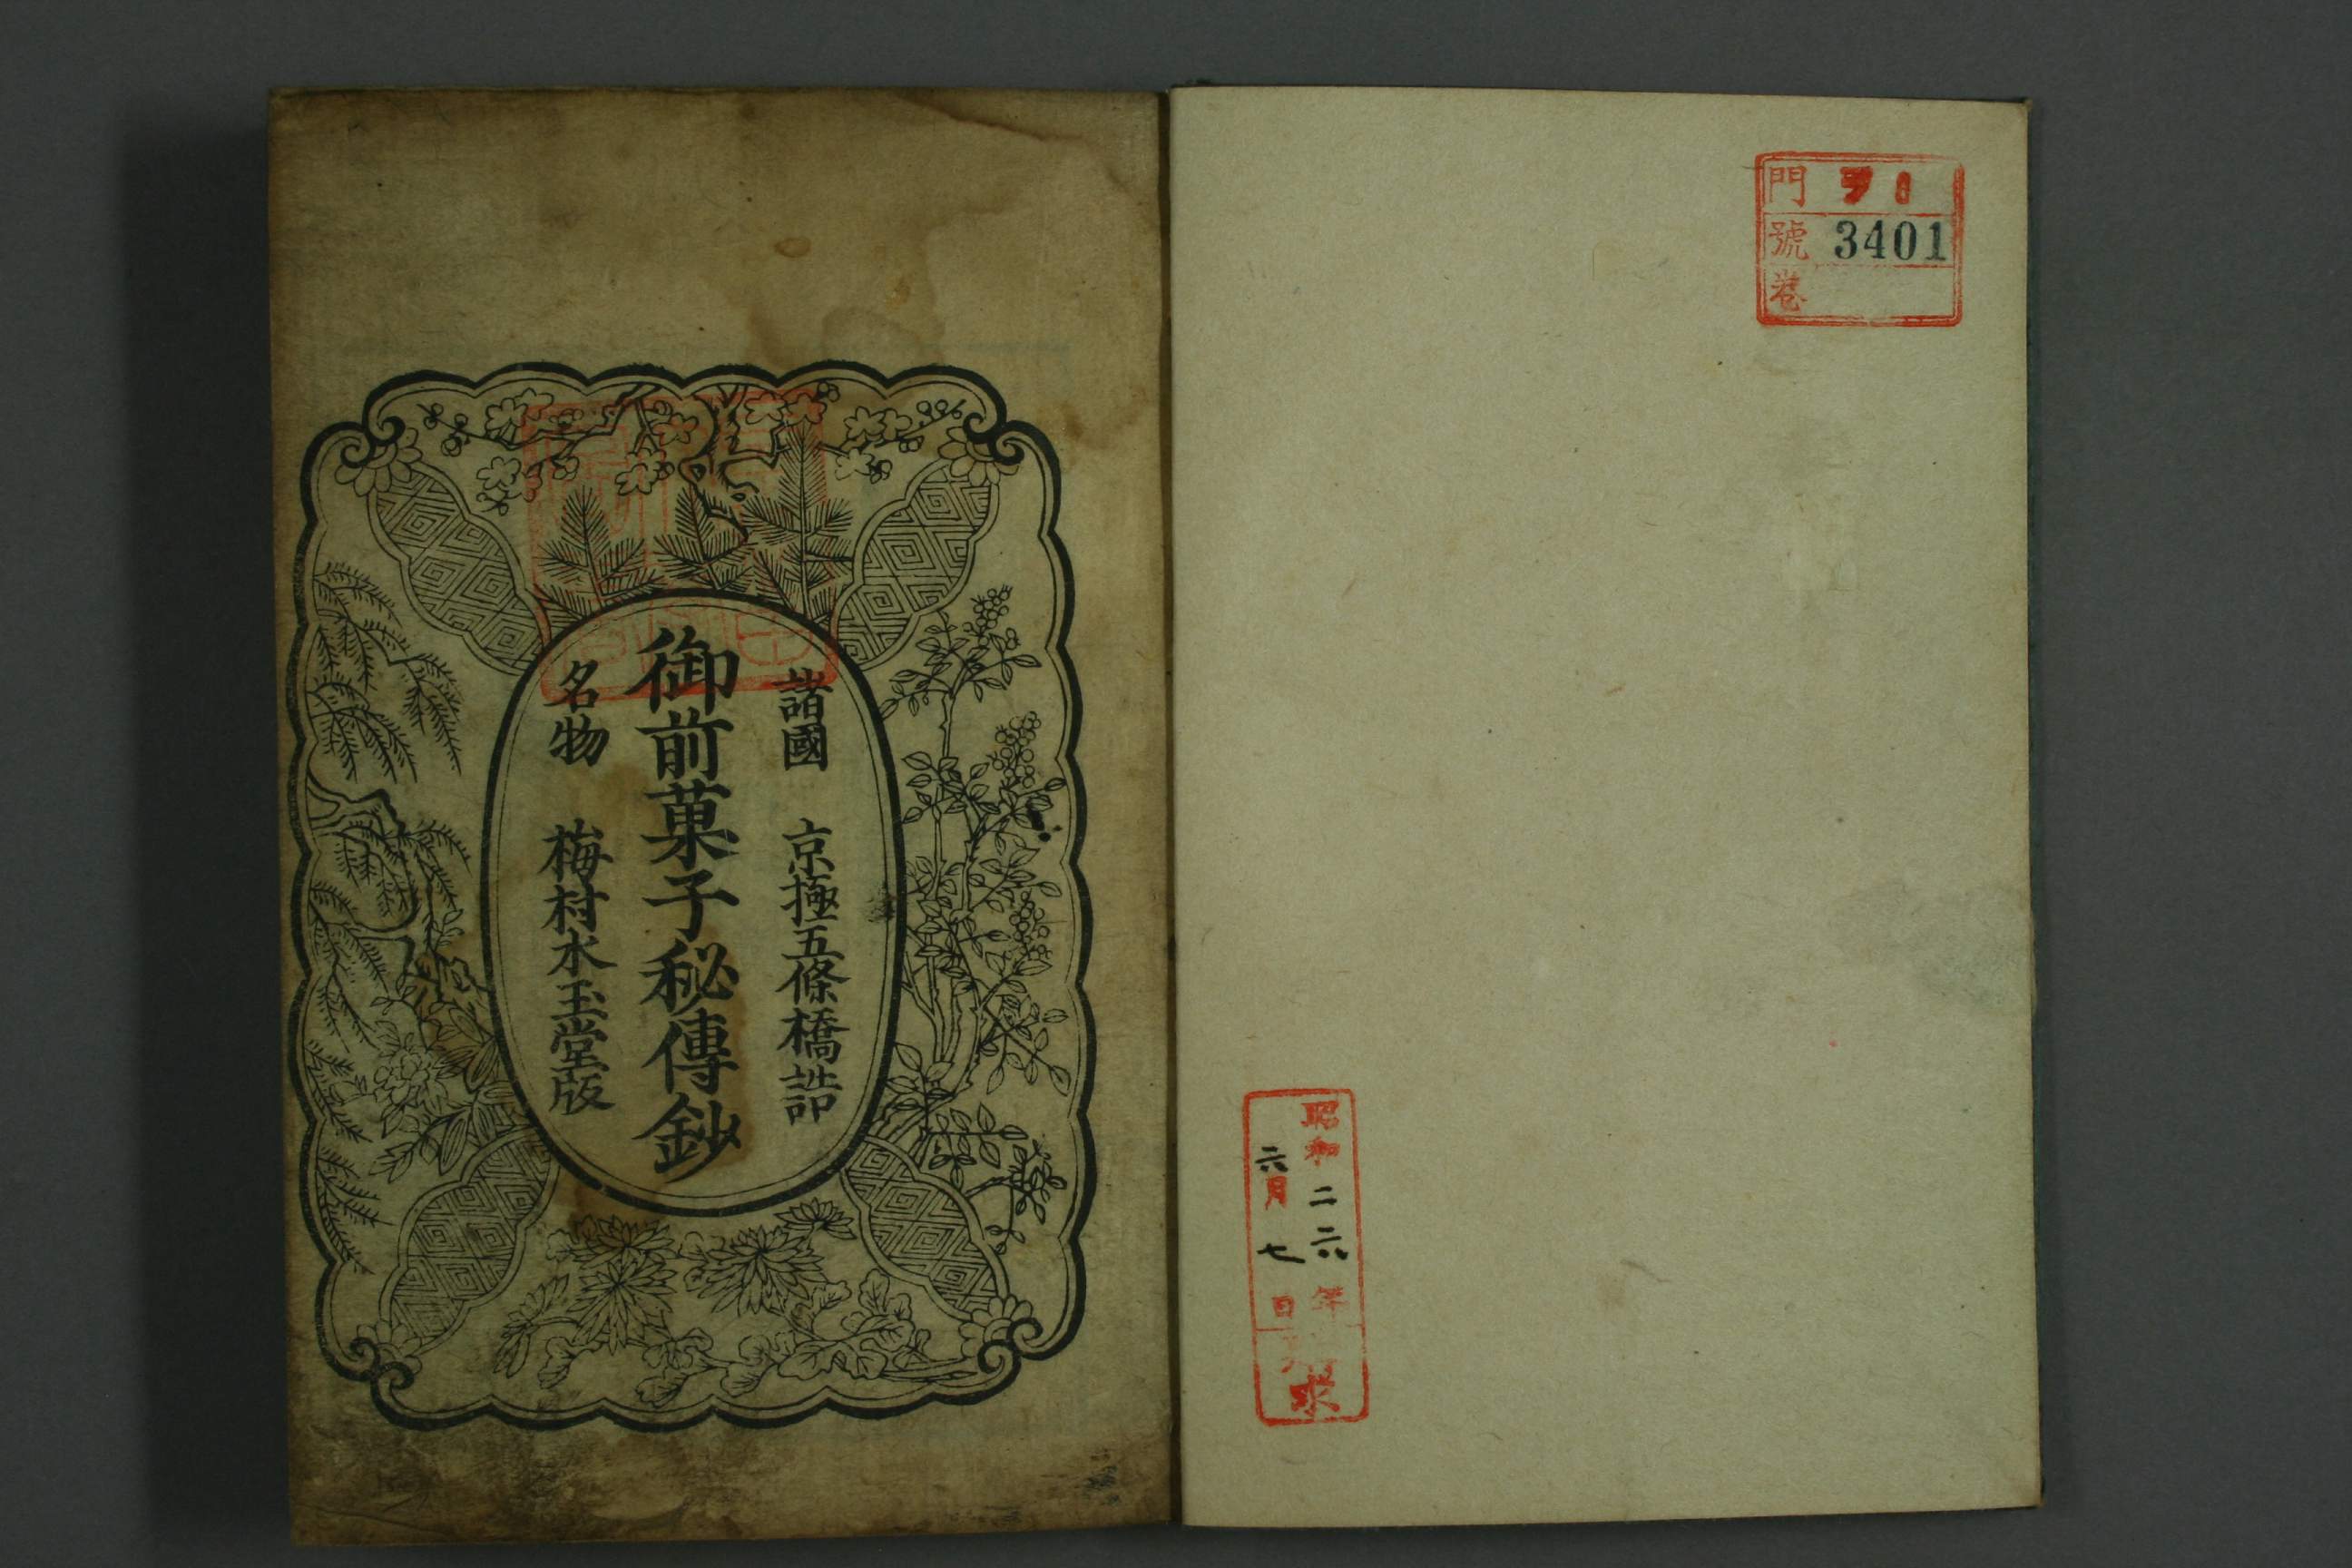 門 ヲ1
號 3401
卷
昭和二六年
六月七日
求
諸國 京極五條橋詰
御前菓子秘傳鈔
名物 梅村水玉堂版